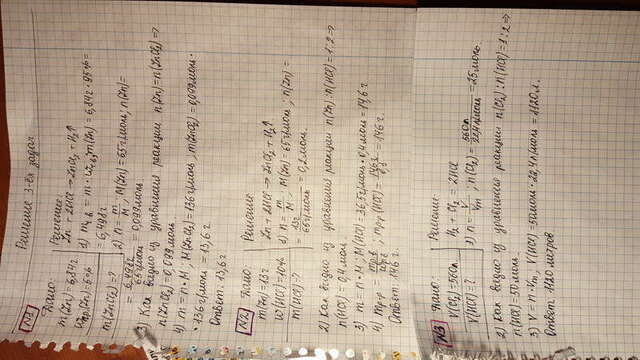 Решение 3-ёх задач
№1
Дано:
m(Zn) = 6,84г.
wпр.(Zn) = 5%
m(ZnCl2) = ?
Решение:
Zn + 2HCl → ZnCl2 + H2↑
= 6,498г
2) n = m/M; M(Zn) = 65г/моль; n(Zn) =
= 6,498г/65г/моль = 0,099моль.
3) Как видно из уравнения реакции n(Zn) = n(ZnCl2) ⇒
n(ZnCl2) = 0,099моль.
4) m = n · M; M(ZnCl2) = 136г/моль; m(ZnCl2) = 0,099моль ·
· 136г/моль = 13,6г.
Ответ: 13,6г.
№2
Дано:
m(Zn) = 13г
w(HCl) = 10%
m(HCl) = ?
Решение:
Zn + 2HCl → ZnCl2 + H2↑
1) n = m/M; M(Zn) = 65г/моль; n(Zn) =
= 13г/65г/моль = 0,2моль.
2) Как видно из уравнения реакции n(Zn) : n(HCl) = 1:2 ⇒
n(HCl) = 0,4моль.
3) m = n · M; M(HCl) = 36,5г/моль · 0,4моль = 14,6г
4) mр-р = mр.в/wр.в; mр-р(HCl) = 14,6г/0,1 = 146г.
Ответ: 146г.
№3
Дано:
V(Cl2) = 560л.
V(HCl) = ?
Решение:
H2 + Cl2 = 2HCl
1) n = V/Vm; n(Cl2) = 560л/22,4л/моль = 25моль.
2) Как видно из уравнения реакции n(Cl2) : n(HCl) = 1:2 ⇒
n(HCl) = 50моль.
3) V = n · Vm, V(HCl) = 50моль · 22,4л/моль = 1120л.
Ответ: 1120 литров.